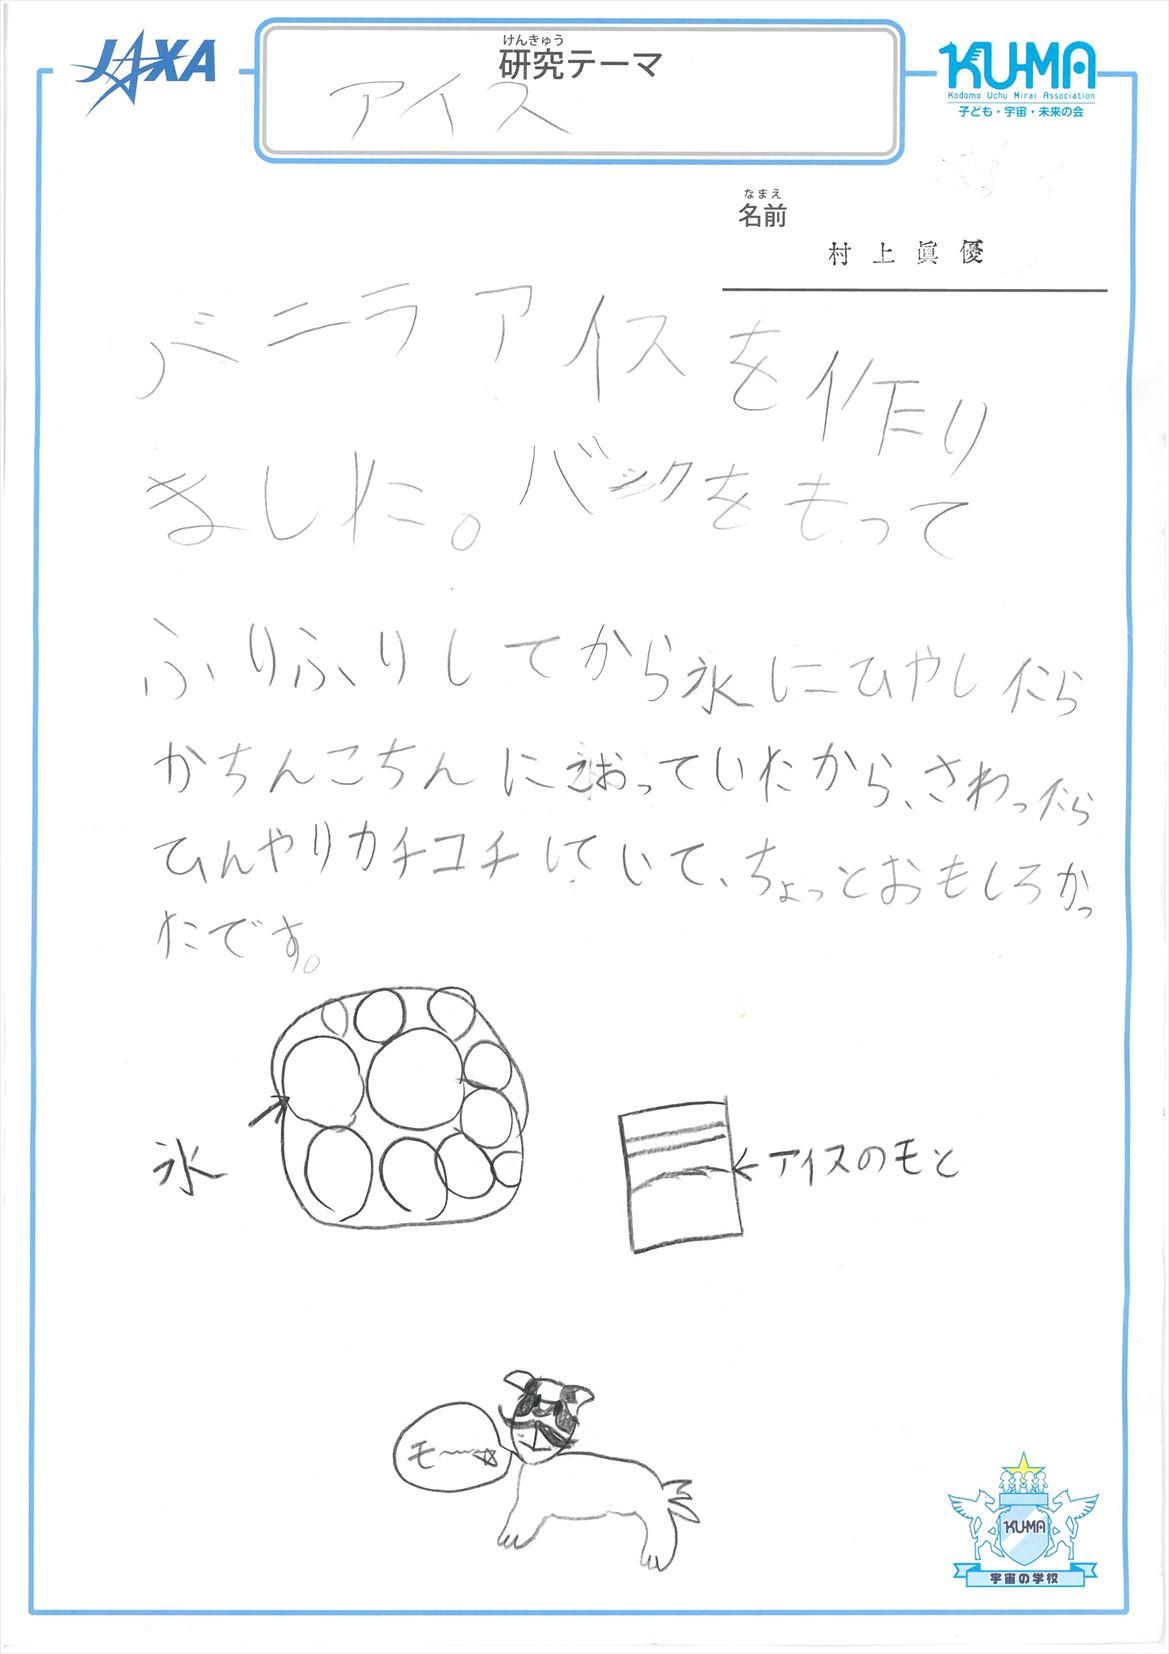 JAXA
けんきゅう
研究テーマ
アイス
KU-MA
Kodomo Uchu Mirai Association
子ども・宇宙・未来の会
なまえ
名前
村上眞優
バニラアイスを作り
ました。バックをもって
ふりふりしてから氷にひやしたら
かちんこちんにおっていたから、さわったら
ひんやりカチコチしていて、ちょっとおもしろかっ
たです。
氷
アイスのモと
モ〜☆
KU-MA
宇宙の学校